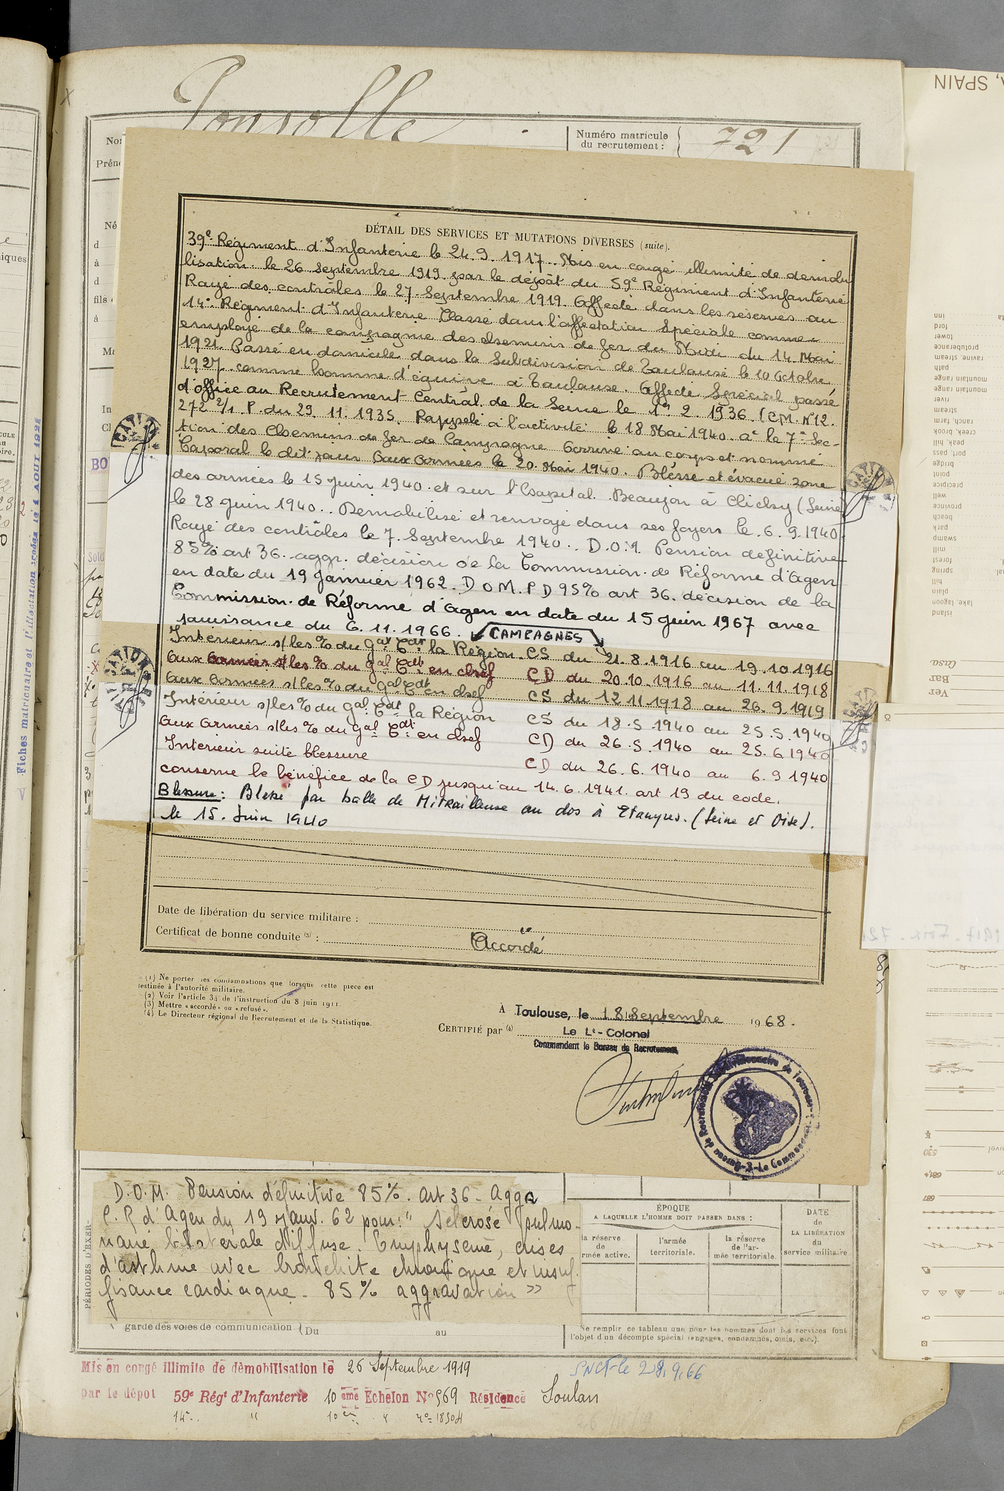 Jousolle
Numéro matricule
du recrutement :
721
DÉTAIL DES SERVICES ET MUTATIONS DIVERSES (suite).
39e Régiment d'Infanterie le 24.9.1917. Mis en congé illimité de démobi
lisation le 26 Septembre 1919 par le dépôt du 59e Régiment d'Infanterie
Rayé des contrôles le 27 Septembre 1919. Affecté dans les réserves au
14e Régiment d'Infanterie Classé dans l'affectation Spéciale comme
employé de la compagnie des chemins de fer du Midi du 14 Mai
1921. Passé en domicile dans la Subdivision de Toulouse le 10 Octobre
1927 comme homme d'équipe à Toulouse. Affecté Spécial passé
d'office au Recrutement Central de la Seine le 1er 2. 1936 (C.M. N°12.
272 2/1 P. du 29.11.1935. Rappelé à l'activité le 18 Mai 1940. à la 7e Sec
tion des Chemins de fer de Campagne Arrivé au corps et nommé
Caporal le dit jour Aux Armées le 20 Mai 1940. Blessé et évacué zone
des armées le 15 Juin 1940 et sur l'hôpital Beaujon à Clichy (Seine
le 28 Juin 1940. Démobilisé et renvoyé dans ses foyers le 6.9.1940
Rayé des contrôles le 7 Septembre 1940. D.O.M. Pension définitive
85% art 36. aggr. décision de la Commission de Réforme d'Agen
en date du 19 Janvier 1962. D O M. P D 95% art 36. décision de la
Commission de Réforme d'Agen en date du 15 Juin 1967 avec
jouissance du 6.11.1966. CAMPAGNES
Intérieur s/les % du Gal Cdt la Région CS du 21.8.1916 au 19.10.1916
Aux Armées s/les % du Gal Cdt en chef CD du 20.10.1916 au 11.11.1918
Aux Armées s/les % du Gal Cdt en chef CS du 12.11.1918 au 26.9.1919
Intérieur s/les % du Gal Cdt la Région CS du 18.5.1940 au 25.5.1940
Aux Armées s/les % du Gal Cdt en chef CD du 26.5.1940 au 25.6.1940
Intérieur suite blessure CD du 26.6.1940 au 6.9.1940
conserve le bénéfice de la CD jusqu'au 14.6.1941. art 19 du code.
Blessure : Blessé par balle de Mitrailleuse au dos à Etampes. (Seine et Oise).
le 15 Juin 1940
Date de libération du service militaire :
Certificat de bonne conduite (3) : Accordé
(1) Ne porter les condamnations que lorsque cette pièce est
destinée à l'autorité militaire.
(2) Voir l'article 34 de l'instruction du 8 juin 1911.
(3) Mettre « accordé » ou « refusé ».
(4) Le Directeur régional du Recrutement et de la Statistique.
À Toulouse, le 18 Septembre 1968.
CERTIFIÉ par (4) Le Lt-Colonel
Commandant le Bureau de Recrutement,
D.O.M. Pension définitive 85%. art 36 - Aggr
C.R d'Agen du 19 Janv. 62 pour : "Sclérose pulmo-
naire bilatérale diffuse. Emphysème, crises
d'asthme avec bronchite chronique et insuf
fisance cardiaque. 85% aggravation »
PÉRIODES D'EXER-
garde des voies de communication { Du au
ÉPOQUE
À LAQUELLE L'HOMME DOIT PASSER DANS :
DATE
de
LA LIBÉRATION
du
service militaire
la réserve
de
l'armée active.
l'armée
territoriale.
la réserve
de l'ar-
mée territoriale.
Ne remplir ce tableau que pour les hommes dont les services font
l'objet d'un décompte spécial (engagés, condamnés, omis, etc.).
Mis en congé illimité de démobilisation le 26 Septembre 1919
par le dépôt 59e Régt d'Infanterie 10 ème Echelon N° 969 Résidence Soulan
SNCF le 28.9.66
Fiches matriculaire et d'affectation
AOUT 1928
SPAIN